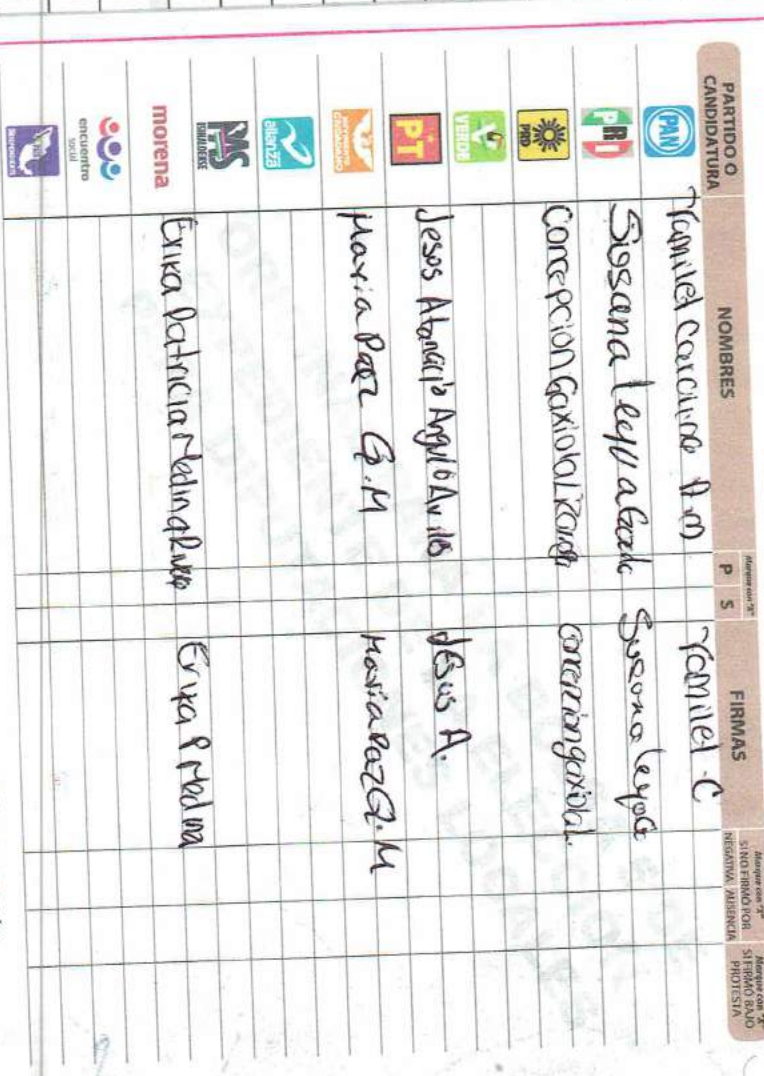 PARTIDO O CANDIDATURA
NOMBRES
Marque con "X"
P S
FIRMAS
Marque con "X" SI NO FIRMÓ POR
NEGATIVA AUSENCIA
Marque con "X" SI FIRMÓ BAJO PROTESTA
PAN Yamilet Carcimo A.M Yamilet C
PRI Leyva Leyva
PRD Concepcion Gaxiola
VERDE
PT Jesus Atanacio Angulo Aviles Jesus A.
MOVIMIENTO CIUDADANO Maria Paz G.M Maria Paz G.M
alianza
PAS SINALOENSE
morena Erika Patricia Medina Erika P Medina
encuentro social
INDEPENDIENTE